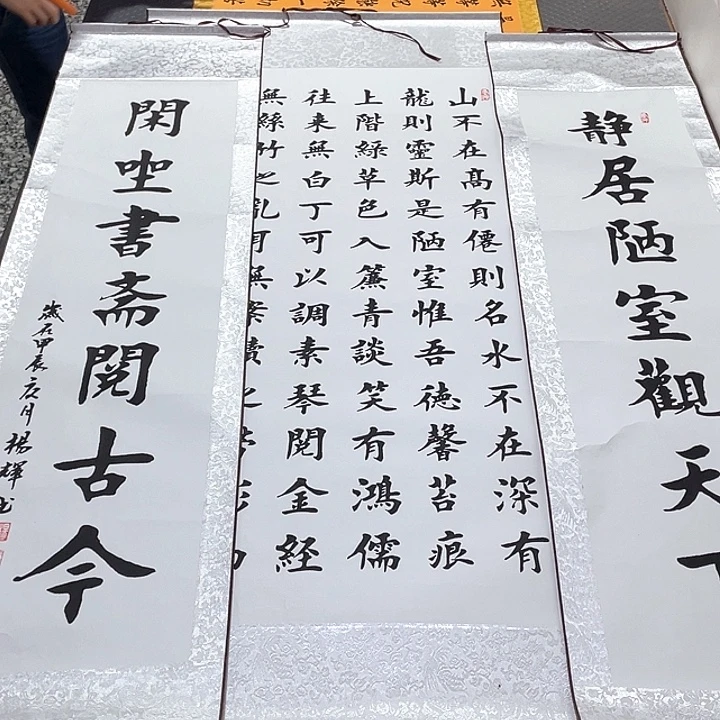 静居陋室觀天下
山不在髙有僊則名水不在深有
龍則靈斯是陋室惟吾德馨苔痕
上階緑草色入簾青談笑有鴻儒
往来無白丁可以調素琴閱金経
無絲竹之乱耳無案牘之劳形
閑坐書斋閱古今
歲在甲辰夏月楊輝书